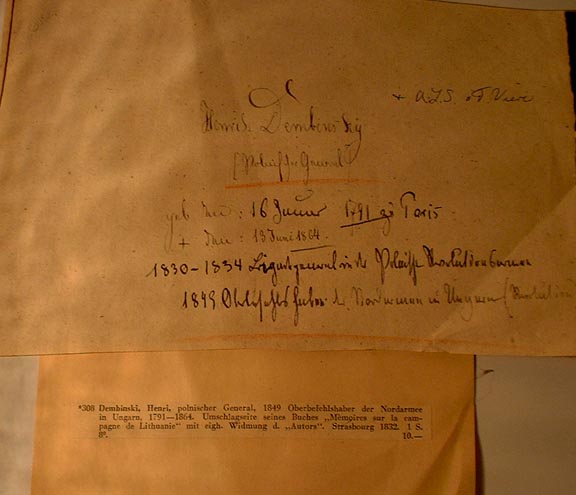 + A.L.S. of View
Henri Dembinsky
(Polnischer General)
geb. den : 16 Januar 1791 zu Paris
+ den : 13 Juni 1864.
1830-1834 in der Polnischen Revolutionsarmee
1849 der Nordarmee in Ungarn (Revolution)
*308 Dembinski, Henri, polnischer General, 1849 Oberbefehlshaber der Nordarmee
in Ungarn. 1791—1864. Umschlagseite seines Buches „Mèmoires sur la cam-
pagne de Lithuanie“ mit eigh. Widmung d. „Autors“. Strasbourg 1832. 1 S.
8°. 10.—